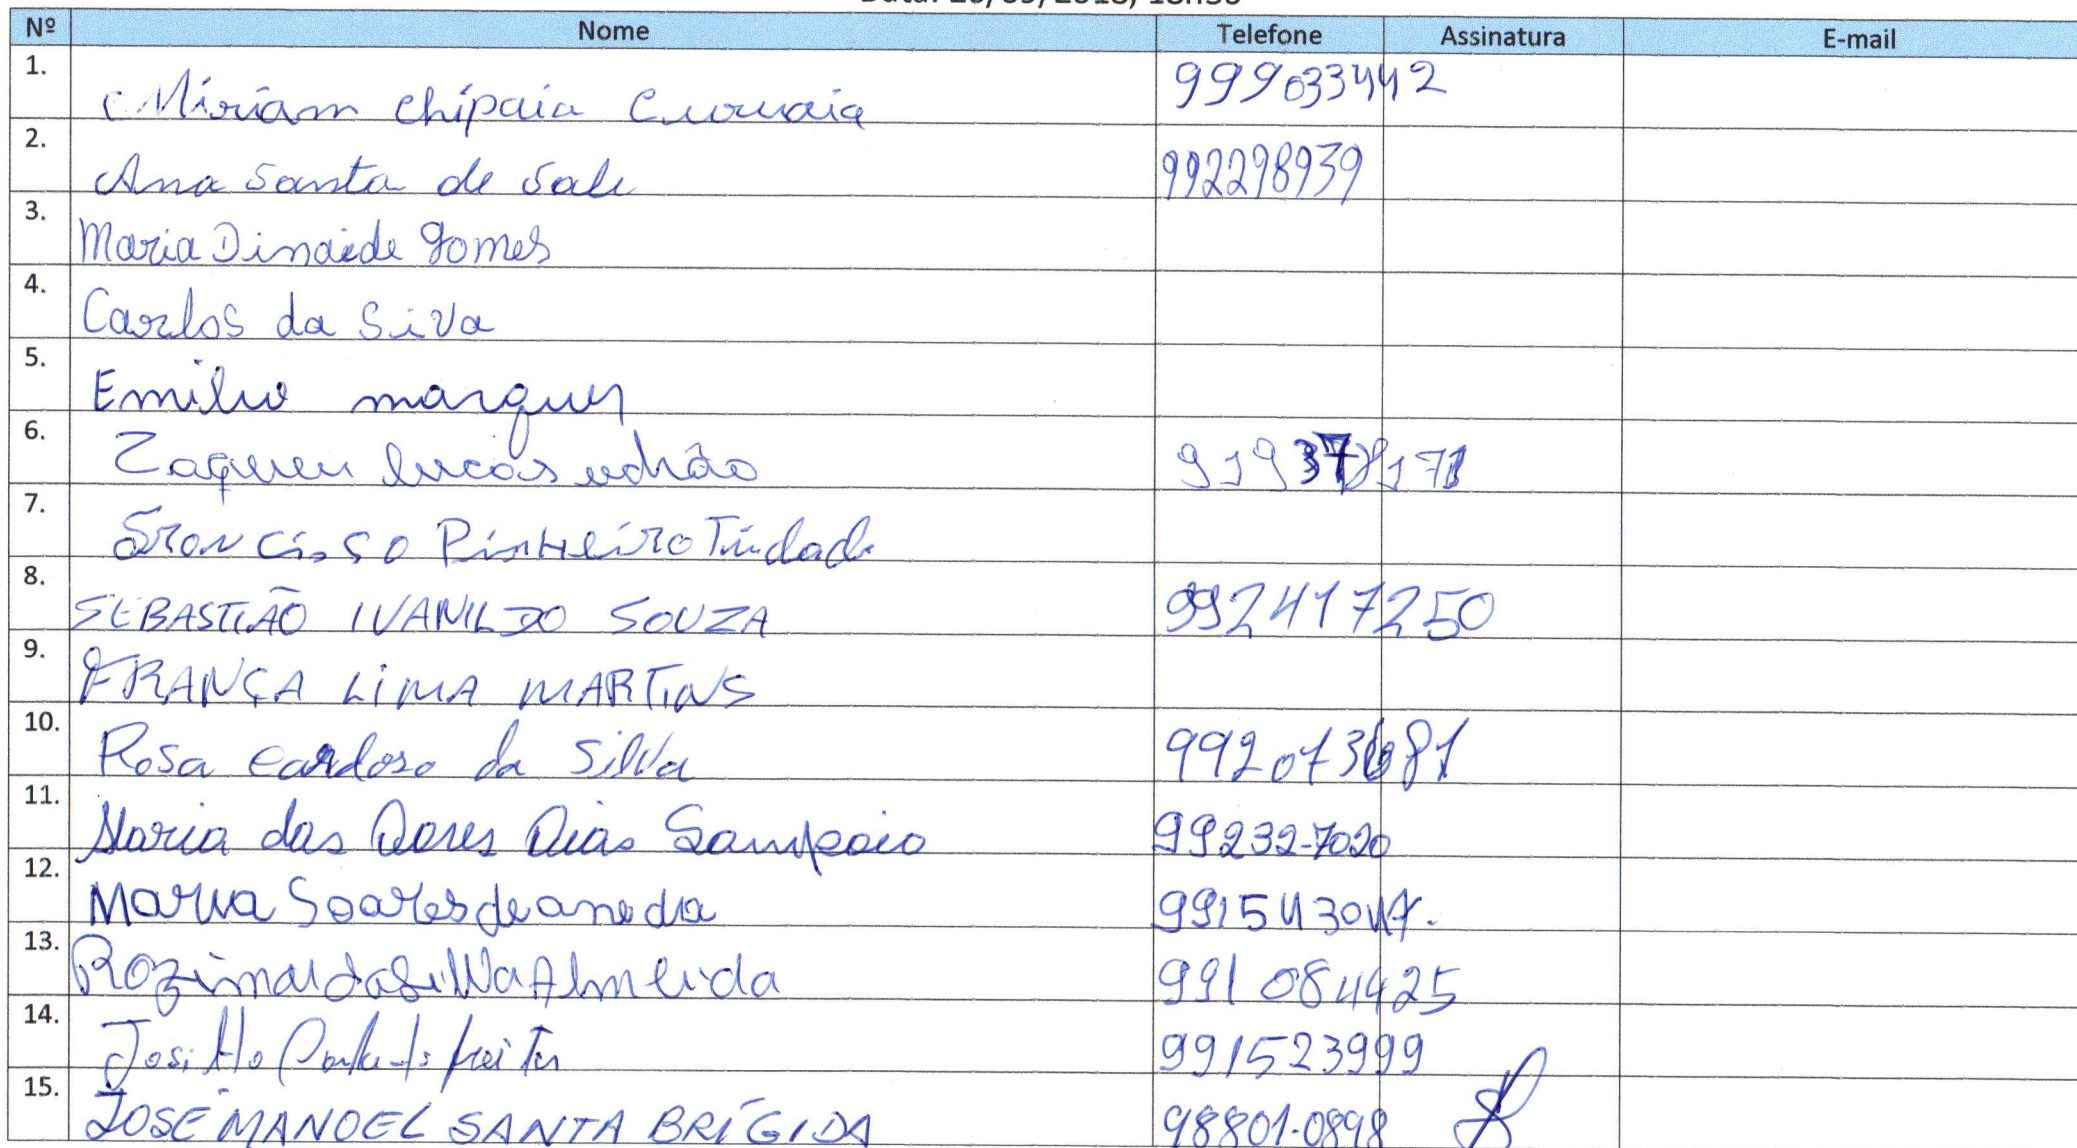 Nº Nome Telefone Assinatura E-mail
1. Miriam Chipaia Curuaia 999033442
2. Ana Santa de Sale 992298939
3. Maria Dinaide Gomes
4. Carlos da Siva
5. Emilio marques
6. Zaqueu lucas 919378171
7. Pinheiro Tindade
8. SEBASTIÃO IVANILDO SOUZA 992417250
9. FRANÇA LIMA MARTINS
10. Rosa Cardoso da Silva 992073681
11. Maria das Dores Dias Sampaio 99232-7020
12. Maria Soares de 991543047.
13. Rozimar da Silva Almeida 991084425
14. 991523999
15. JOSÉ MANOEL SANTA BRÍGIDA 98801-0898